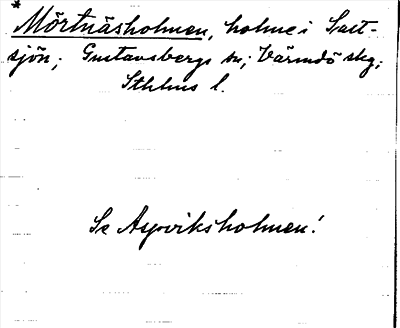 *
Mörtnäsholmen, holme i Salt-
sjön; Gustavsbergs sn; Värmdö skg;
Sthlms l.
Se Aspviksholmen!